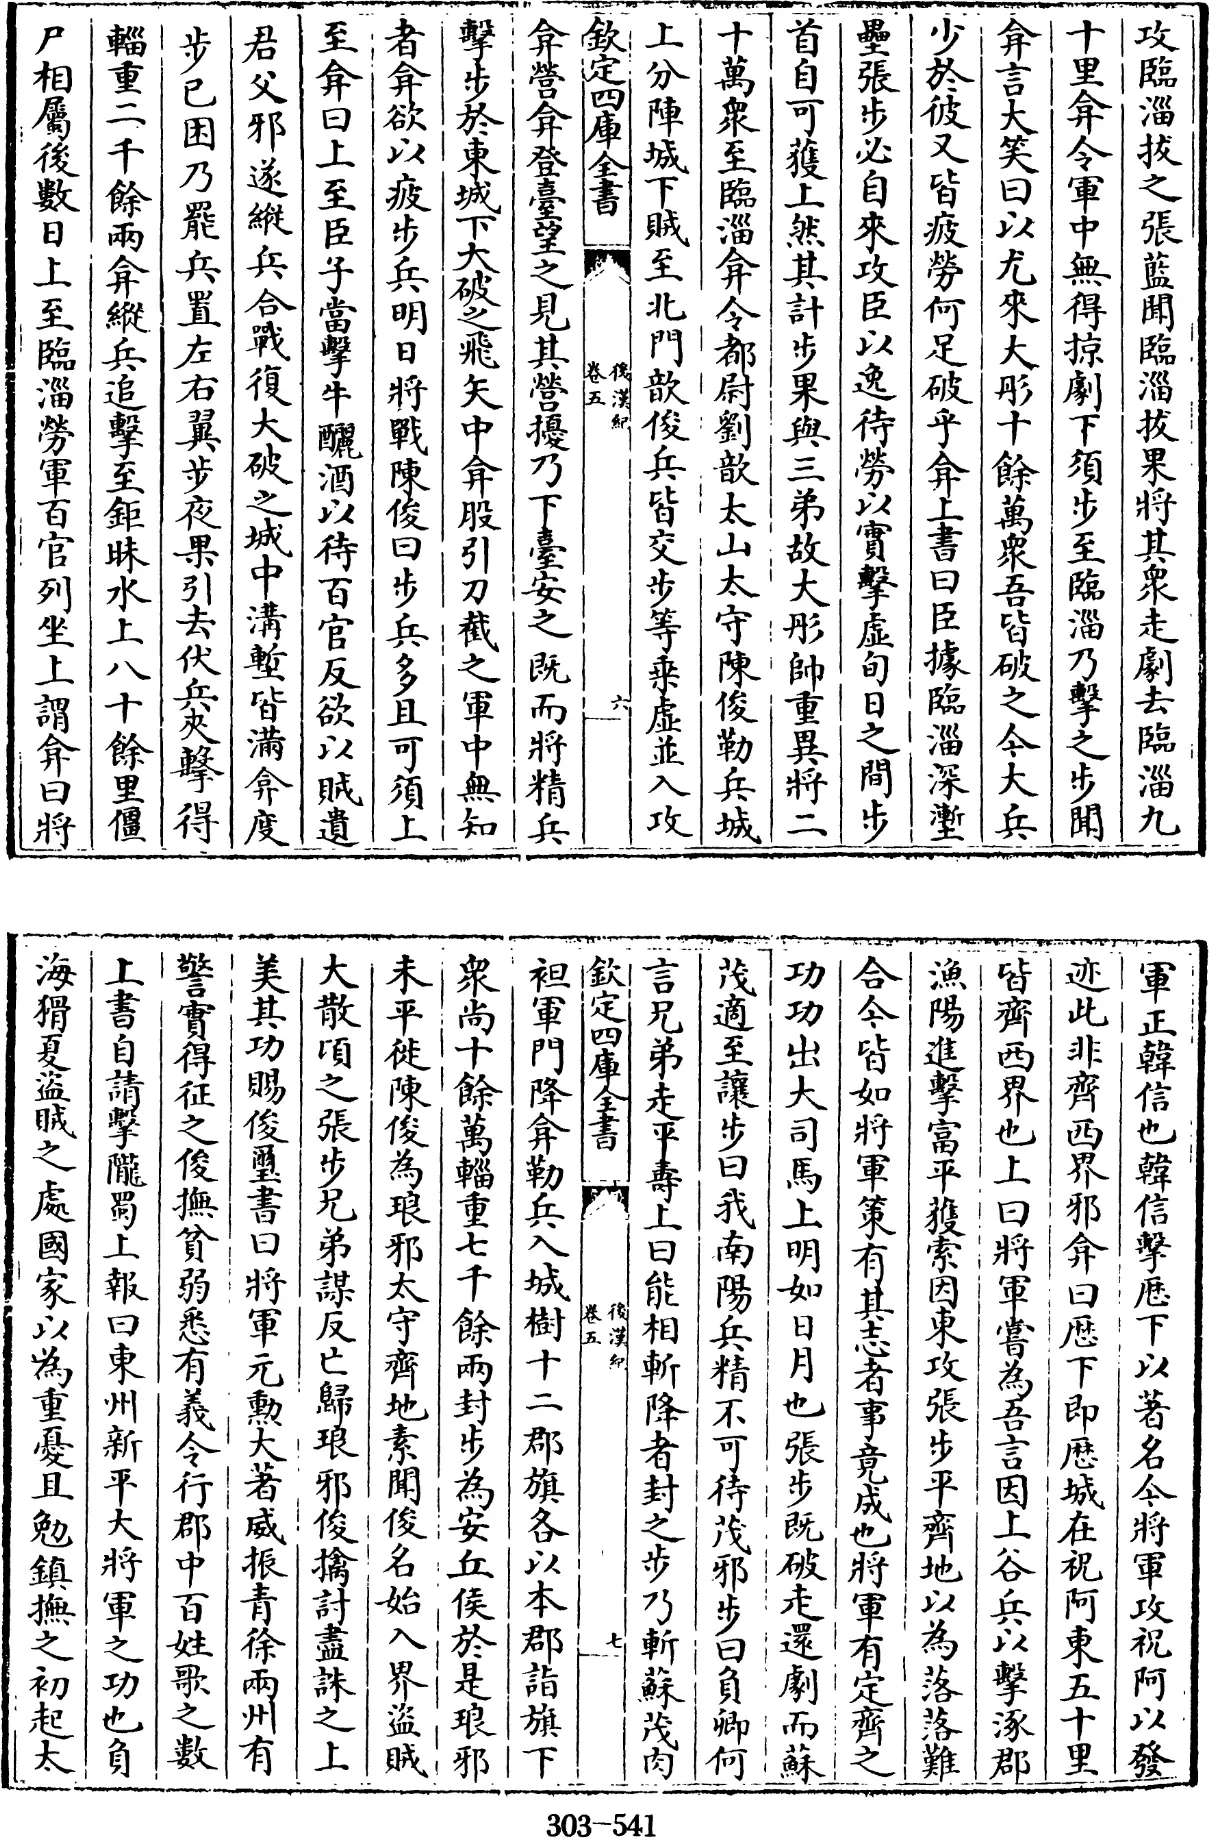 攻臨淄拔之張藍聞臨淄拔果將其衆走劇去臨淄九
十里弇令軍中無得掠劇下須步至臨淄乃擊之步聞
弇言大笑曰以尤來大彤十餘萬衆吾皆破之今大兵
少於彼又皆疲勞何足破乎弇上書曰臣據臨淄深塹
壘張步必自來攻臣以逸待勞以實擊虛旬日之間步
首自可獲上然其計步果與三弟故大彤帥重異將二
十萬衆至臨淄弇令都尉劉歆太山太守陳俊勒兵城
上分陣城下賊至北門歆俊兵皆交步等乘虛並入攻
欽定四庫全書 後漢紀 卷五 六
弇營弇登臺望之見其營擾乃下臺安之既而將精兵
擊步於東城下大破之飛矢中弇股引刀截之軍中無知
者弇欲以疲步兵明日將戰陳俊曰步兵多且可須上
至弇曰上至臣子當擊牛釃酒以待百官反欲以賊遺
君父邪遂縱兵合戰復大破之城中溝塹皆滿弇度
步已困乃罷兵置左右翼步夜果引去伏兵夾擊得
輜重二千餘兩弇縱兵追擊至鉅昧水上八十餘里僵
尸相屬後數日上至臨淄勞軍百官列坐上謂弇曰將
軍正韓信也韓信擊厯下以著名今將軍攻祝阿以發
迹此非齊西界邪弇曰厯下即厯城在祝阿東五十里
皆齊西界也上曰將軍嘗為吾言因上谷兵以擊涿郡
漁陽進擊富平獲索因東攻張步平齊地以為落落難
合今皆如將軍策有其志者事竟成也將軍有定齊之
功功出大司馬上明如日月也張步既破走還劇而蘇
茂適至讓步曰我南陽兵精不可待茂邪步曰負卿何
言兄弟走平壽上曰能相斬降者封之步乃斬蘇茂肉
欽定四庫全書 後漢紀 卷五 七
袒軍門降弇勒兵入城樹十二郡旗各以本郡詣旗下
衆尚十餘萬輜重七千餘兩封步為安丘侯於是琅邪
未平徙陳俊為琅邪太守齊地素聞俊名始入界盜賊
大散頃之張步兄弟謀反亡歸琅邪俊擒討盡誅之上
美其功賜俊璽書曰將軍元勲大著威振青徐兩州有
警實得征之俊撫貧弱悉有義令行郡中百姓歌之數
上書自請擊隴蜀上報曰東州新平大將軍之功也負
海猾夏盜賊之處國家以為重憂且勉鎮撫之初起太
303-541